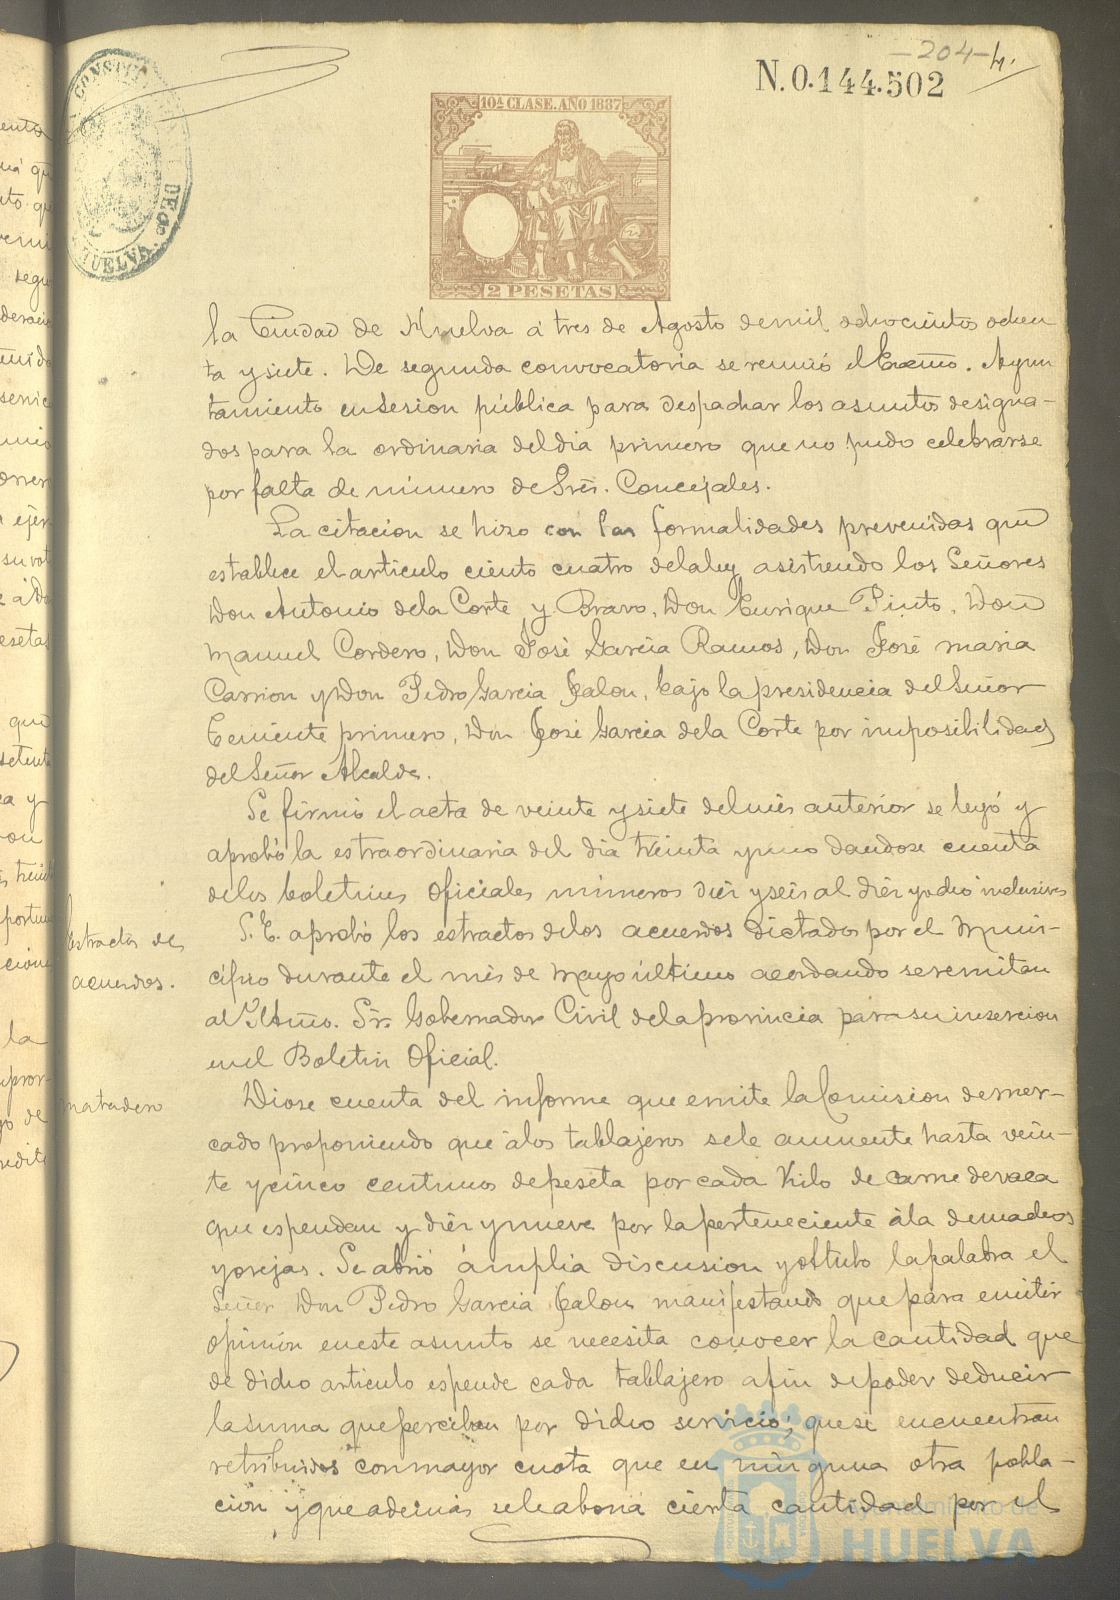 -204-
N. 0.144.502
CONSTIT
DEGª
HUELVA
10ª CLASE. AÑO 1887
2 PESETAS
la Ciudad de Huelva á tres de Agosto de mil ochocientos ochen
ta y siete. De segunda convocatoria se reunió el Excmo. Ayun
tamiento en sesion pública para despachar los asuntos designa-
dos para la ordinaria del dia primero que no pudo celebrarse
por falta de número de Sres. Concejales.
La citacion se hizo con las formalidades prevenidas que
establece el articulo ciento cuatro de la ley asistiendo los Señores
Don Antonio de la Corte y Bravo, Don Enrique Pinto, Don
Manuel Cordero, Don José Garcia Ramos, Don José Maria
Carrion y Don Pedro Garcia Jalon, bajo la presidencia del Señor
Teniente primero, Don José Garcia de la Corte por imposibilidad
del Señor Alcalde.
Se firmó el acta de veinte y siete del mes anterior se leyó y
aprobó la estraordinaria del dia treinta y uno dandose cuenta
de los boletines oficiales números diez y seis al diez y ocho inclusives
Estractos de
acuerdos.
S. E. aprobó los estractos de los acuerdos dictados por el Muni-
cipio durante el mes de Mayo último acordando se remitan
al Iltmo. Sr. Gobernador Civil de la provincia para su insercion
en el Boletin Oficial.
matadero
Diose cuenta del informe que emite la Comision de mer-
cado proponiendo que á los tablajeros se le aumente hasta vein-
te y cinco centimos de peseta por cada Kilo de carne de vaca
que espendan y diez y nueve por la perteneciente á la de machos
y ovejas. Se abrió ámplia discusion y obtubo la palabra el
Señor Don Pedro Garcia Jalon manifestando que para emitir
opinión en este asunto se necesita conocer la cantidad que
de dicho articulo espende cada tablajero a fin de poder deducir
la suma que perciban por dicho servicio; que se encuentran
retribuidos con mayor cuota que en ninguna otra pobla-
ción y que además se le abona cierta cantidad por el
Ayuntamiento de
HUELVA